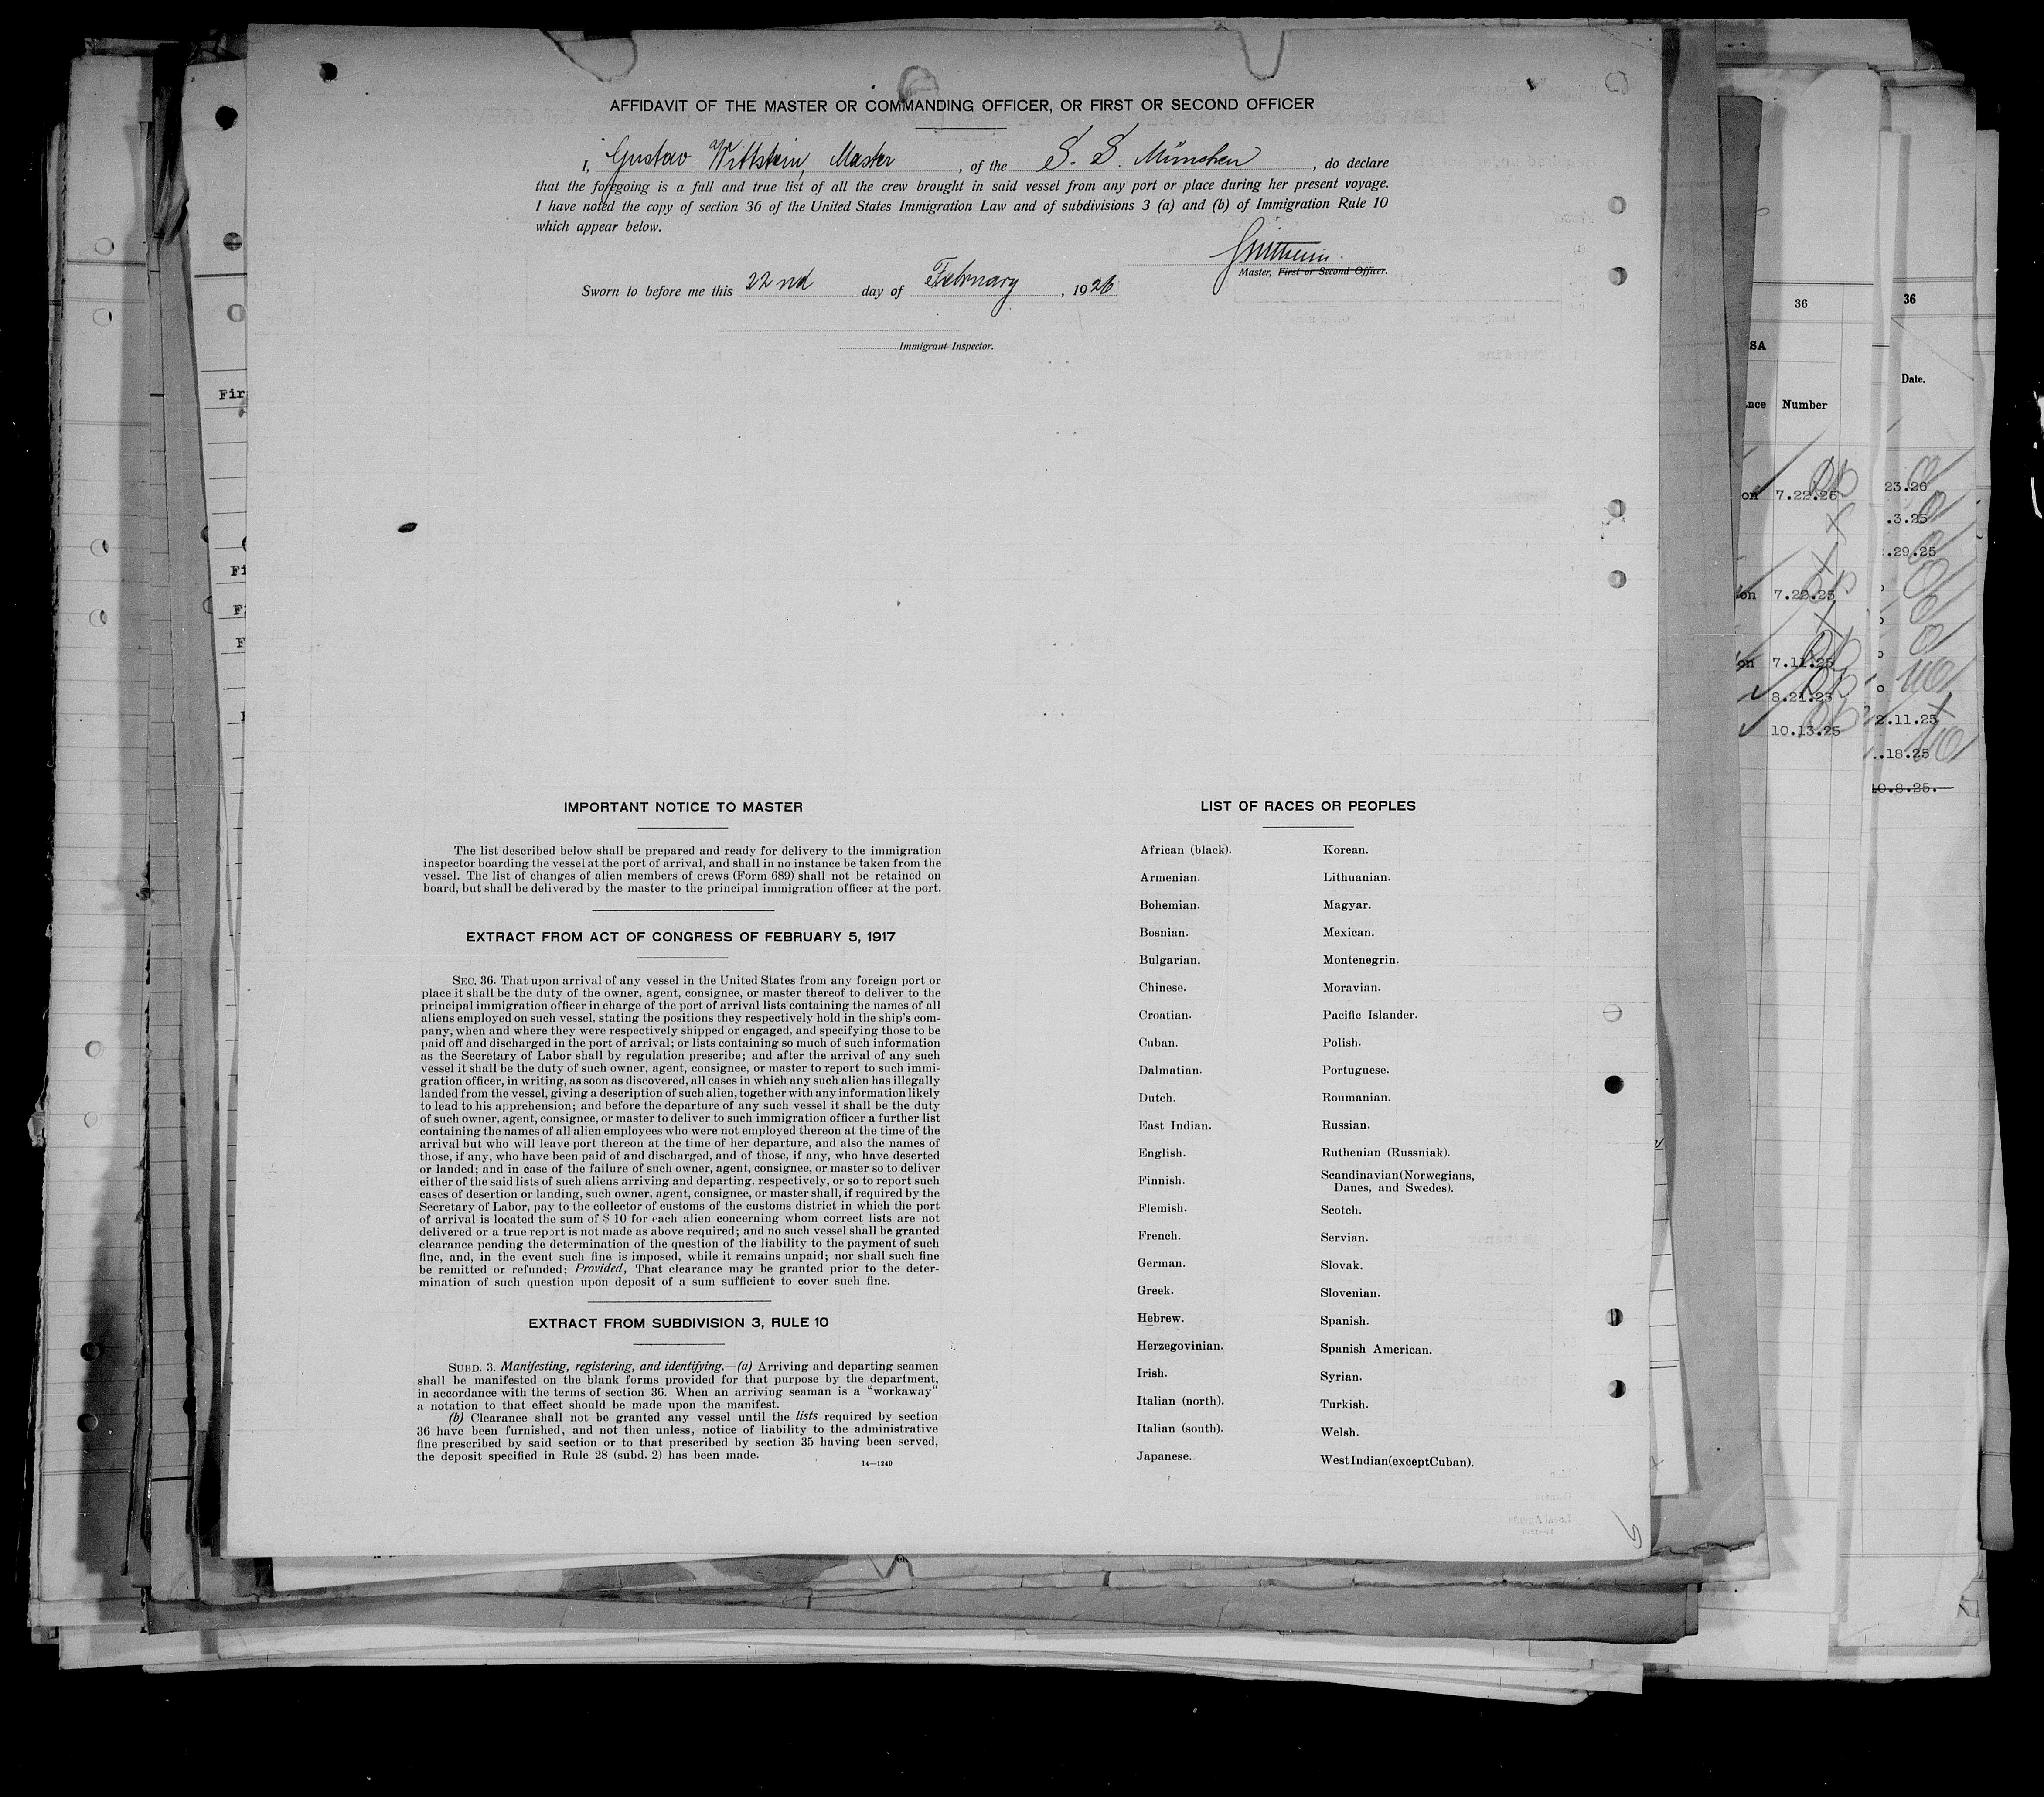 AFFIDAVIT OF THE MASTER OR COMMANDING OFFICER, OR FIRST OR SECOND OFFICER
I, Gustav Wittstein, Master, of the S. S. München, do declare
that the foregoing is a full and true list of all the crew brought in said vessel from any port or place during her present voyage.
I have noted the copy of section 36 of the United States Immigration Law and of subdivisions 3 (a) and (b) of Immigration Rule 10
which appear below.
Master, First or Second Officer.
Sworn to before me this 22nd day of February, 1926
Immigrant Inspector.
IMPORTANT NOTICE TO MASTER
The list described below shall be prepared and ready for delivery to the immigration
inspector boarding the vessel at the port of arrival, and shall in no instance be taken from the
vessel. The list of changes of alien members of crews (Form 689) shall not be retained on
board, but shall be delivered by the master to the principal immigration officer at the port.
EXTRACT FROM ACT OF CONGRESS OF FEBRUARY 5, 1917
SEC. 36. That upon arrival of any vessel in the United States from any foreign port or
place it shall be the duty of the owner, agent, consignee, or master thereof to deliver to the
principal immigration officer in charge of the port of arrival lists containing the names of all
aliens employed on such vessel, stating the positions they respectively hold in the ship's com-
pany, when and where they were respectively shipped or engaged, and specifying those to be
paid off and discharged in the port of arrival; or lists containing so much of such information
as the Secretary of Labor shall by regulation prescribe; and after the arrival of any such
vessel it shall be the duty of such owner, agent, consignee, or master to report to such immi-
gration officer, in writing, as soon as discovered, all cases in which any such alien has illegally
landed from the vessel, giving a description of such alien, together with any information likely
to lead to his apprehension; and before the departure of any such vessel it shall be the duty
of such owner, agent, consignee, or master to deliver to such immigration officer a further list
containing the names of all alien employees who were not employed thereon at the time of the
arrival but who will leave port thereon at the time of her departure, and also the names of
those, if any, who have been paid of and discharged, and of those, if any, who have deserted
or landed; and in case of the failure of such owner, agent, consignee, or master so to deliver
either of the said lists of such aliens arriving and departing, respectively, or so to report such
cases of desertion or landing, such owner, agent, consignee, or master shall, if required by the
Secretary of Labor, pay to the collector of customs of the customs district in which the port
of arrival is located the sum of $ 10 for each alien concerning whom correct lists are not
delivered or a true report is not made as above required; and no such vessel shall be granted
clearance pending the determination of the question of the liability to the payment of such
fine, and, in the event such fine is imposed, while it remains unpaid; nor shall such fine
be remitted or refunded; Provided, That clearance may be granted prior to the deter-
mination of such question upon deposit of a sum sufficient to cover such fine.
EXTRACT FROM SUBDIVISION 3, RULE 10
SUBD. 3. Manifesting, registering, and identifying.—(a) Arriving and departing seamen
shall be manifested on the blank forms provided for that purpose by the department,
in accordance with the terms of section 36. When an arriving seaman is a "workaway"
a notation to that effect should be made upon the manifest.
(b) Clearance shall not be granted any vessel until the lists required by section
36 have been furnished, and not then unless, notice of liability to the administrative
fine prescribed by said section or to that prescribed by section 35 having been served,
the deposit specified in Rule 28 (subd. 2) has been made.
14—1240
LIST OF RACES OR PEOPLES
African (black).
Armenian.
Bohemian.
Bosnian.
Bulgarian.
Chinese.
Croatian.
Cuban.
Dalmatian.
Dutch.
East Indian.
English.
Finnish.
Flemish.
French.
German.
Greek.
Hebrew.
Herzegovinian.
Irish.
Italian (north).
Italian (south).
Japanese.
Korean.
Lithuanian.
Magyar.
Mexican.
Montenegrin.
Moravian.
Pacific Islander.
Polish.
Portuguese.
Roumanian.
Russian.
Ruthenian (Russniak).
Scandinavian (Norwegians,
Danes, and Swedes).
Scotch.
Servian.
Slovak.
Slovenian.
Spanish.
Spanish American.
Syrian.
Turkish.
Welsh.
West Indian (except Cuban).
36
Number
7.22.25
7.11.25
8.21.25
10.13.25
36
Date.
23.26
.3.25
.29.25
2.11.25
.18.25
10.8.25.